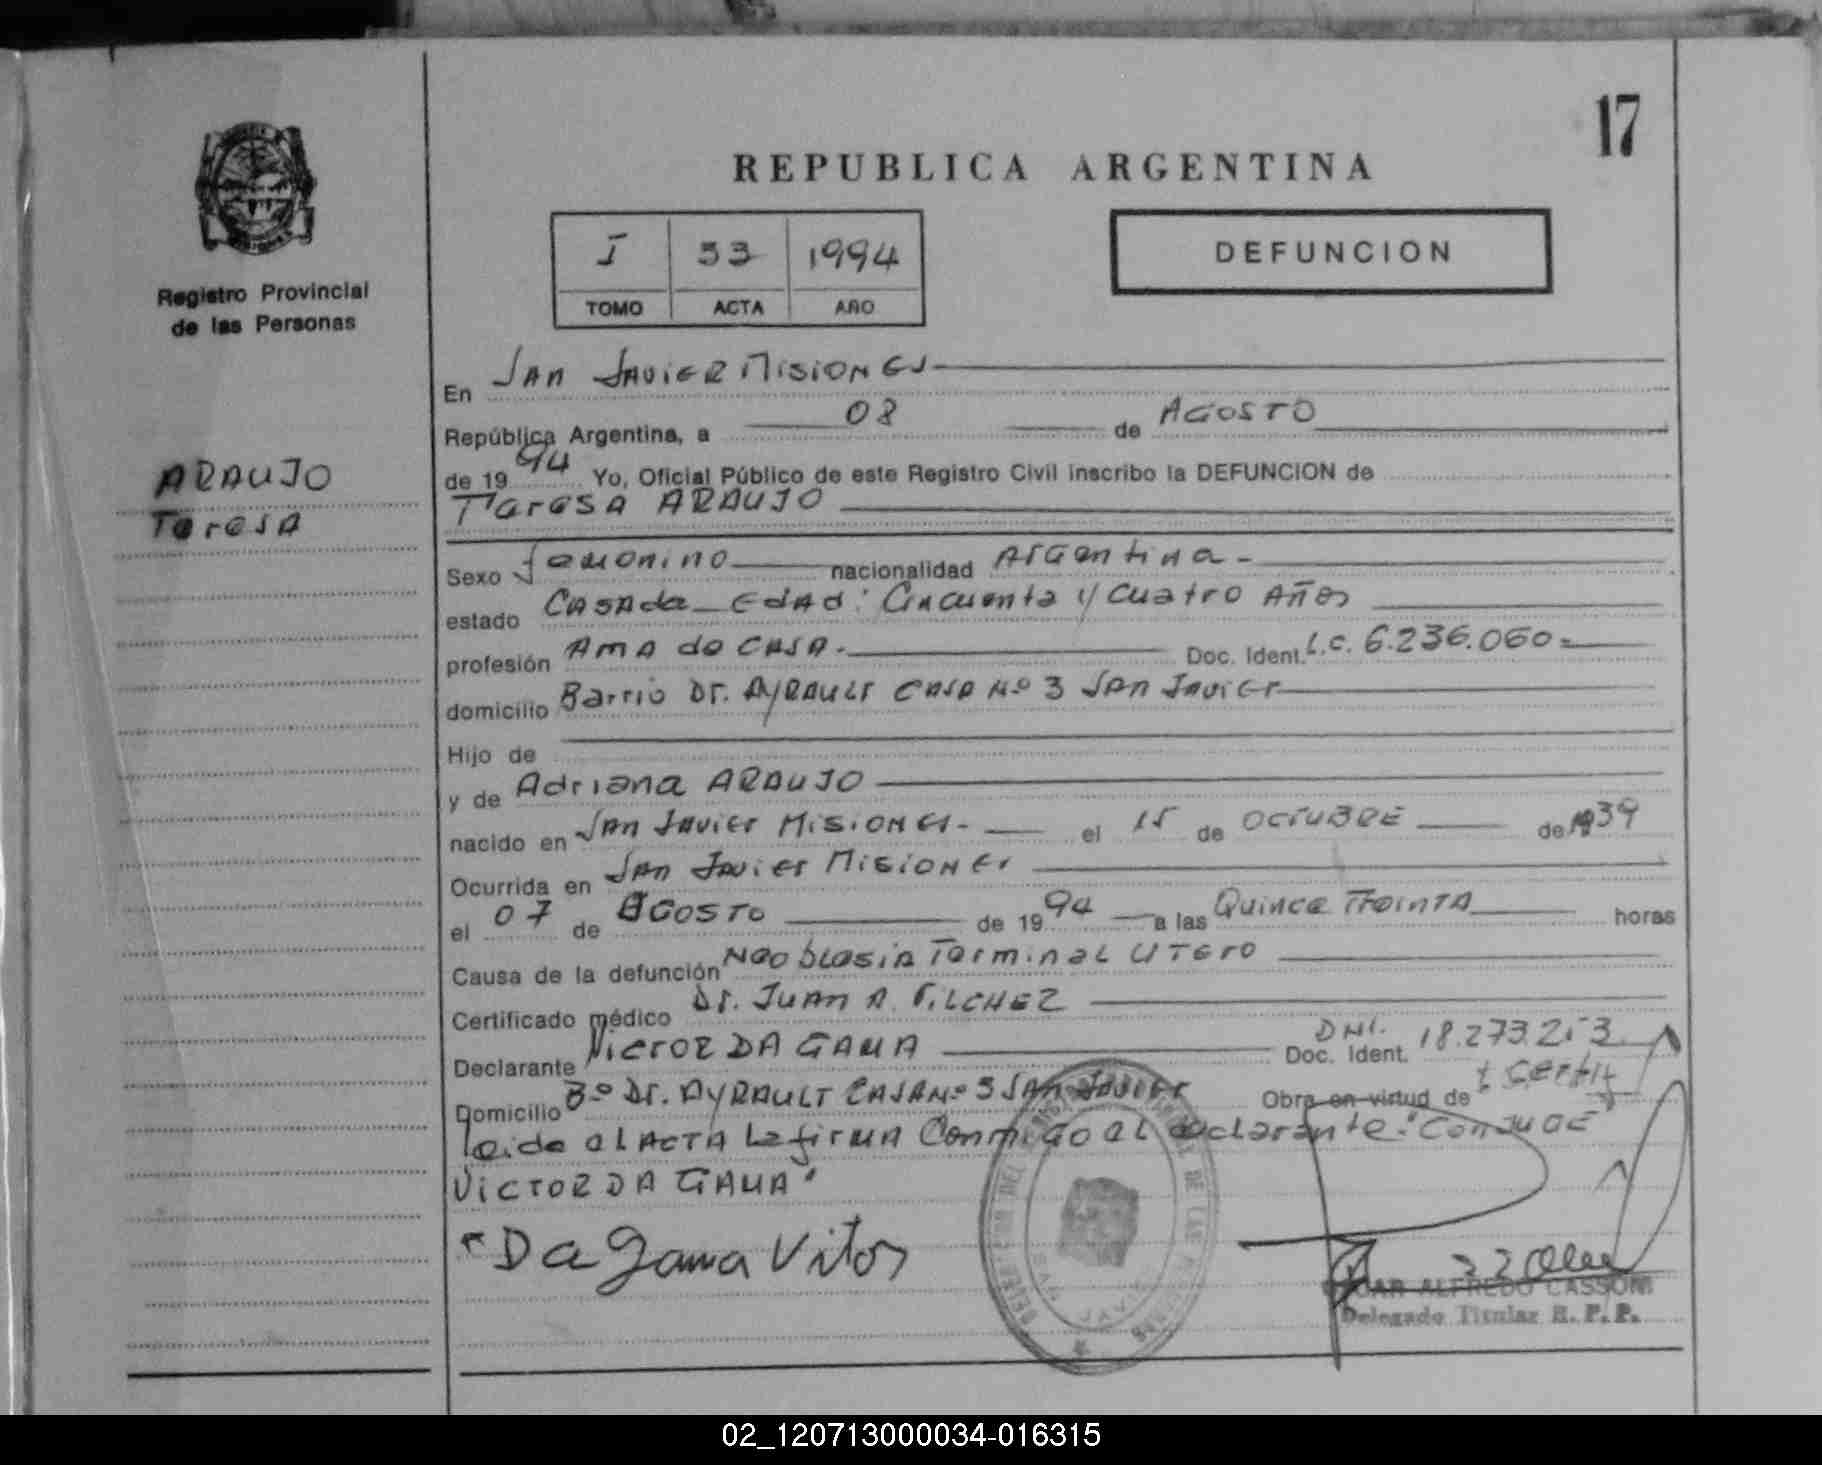 17
REPUBLICA ARGENTINA
I 53 1994
TOMO ACTA AÑO
DEFUNCION
Registro Provincial
de las Personas
ARAUJO
Teresa
En San Javier Misiones
República Argentina, a 08 de Agosto
de 1994 Yo, Oficial Público de este Registro Civil inscribo la DEFUNCION de
Teresa ARAUJO
Sexo femenino nacionalidad Argentina
estado Casada Edad: Cincuenta y Cuatro Años
profesión Ama de Casa. Doc. Ident. L.C. 6.236.060
domicilio Barrio Dr. Ayrault Casa Nº 3 San Javier
Hijo de
y de Adriana ARAUJO
nacido en San Javier Misiones el 15 de Octubre de 1939
Ocurrida en San Javier Misiones
el 07 de Agosto de 1994 a las Quince Treinta horas
Causa de la defunción Neoblasia Terminal Utero
Certificado médico Dr. Juan A. Vilchez
Declarante Victor DA GAMA Doc. Ident. DNI. 18.273.213
Domicilio Bº Dr. Ayrault Casa Nº 3 San Javier Obra en virtud de
Leida el Acta la firma Conmigo el declarante: "Conjuge
Victor DA GAMA"
"Da Gama Vitor
ALFREDO CASSONI
Delegado Titular R. P. P.
02_120713000034-016315